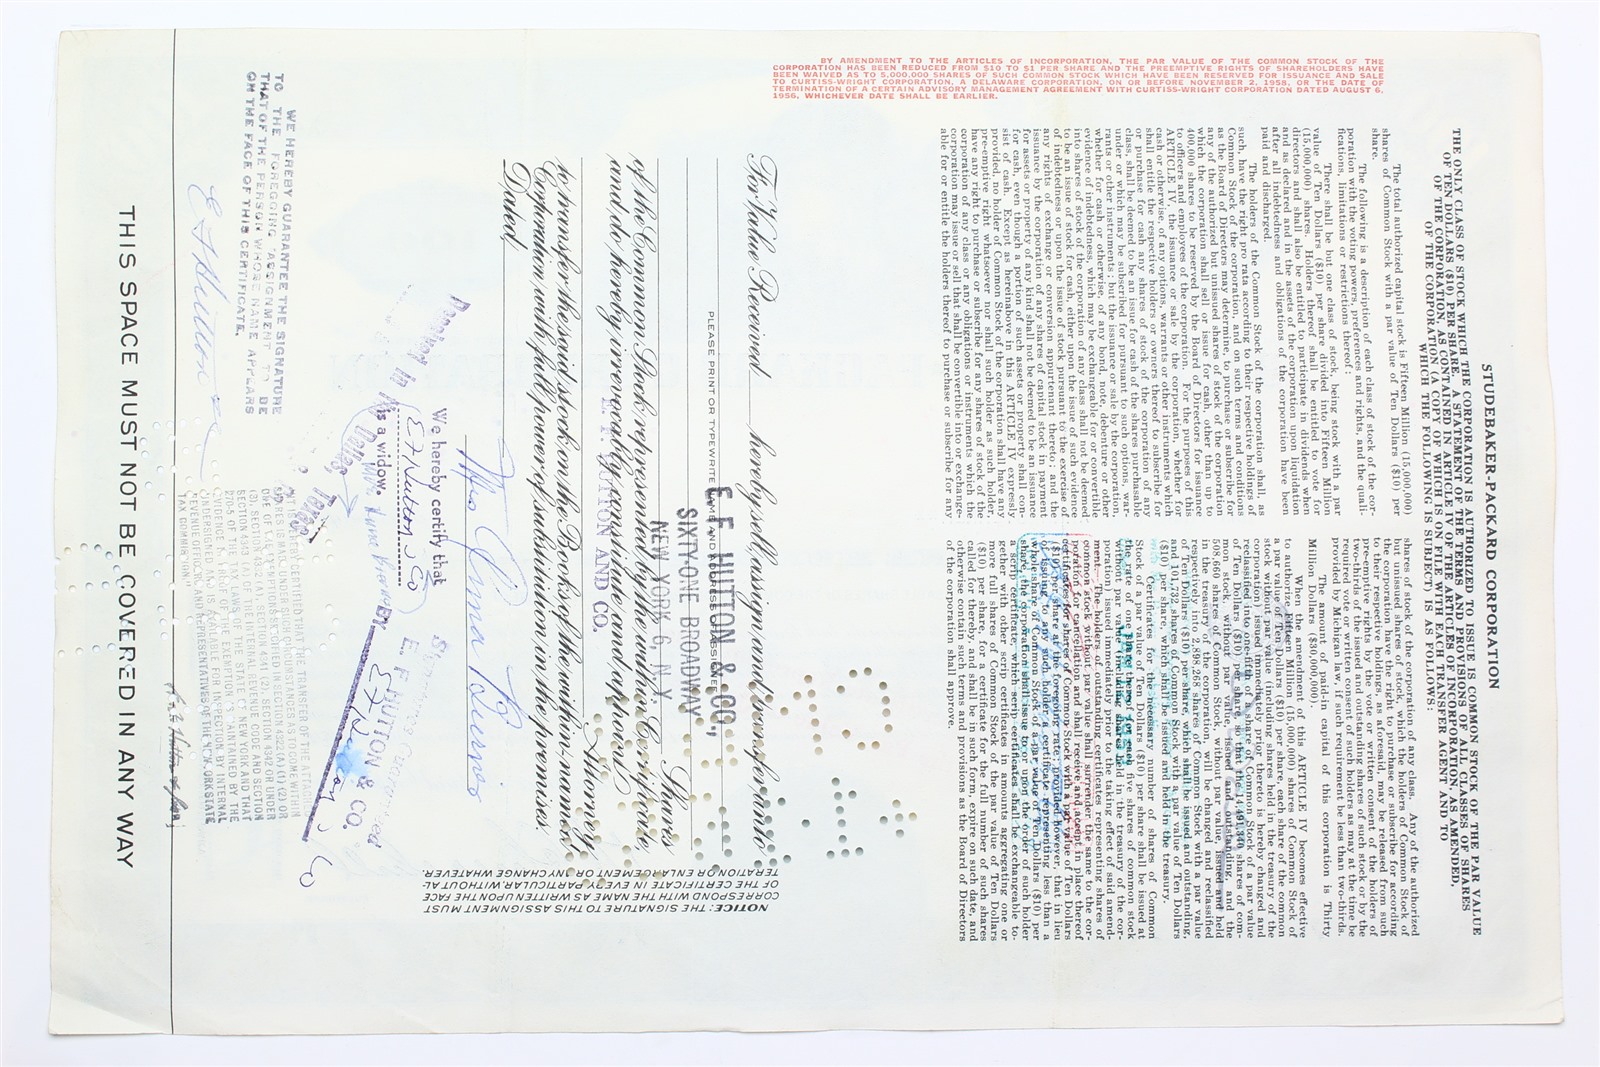 BY AMENDMENT TO THE ARTICLES OF INCORPORATION, THE PAR VALUE OF THE COMMON STOCK OF THE
CORPORATION HAS BEEN REDUCED FROM $10 TO $1 PER SHARE AND THE PREEMPTIVE RIGHTS OF SHAREHOLDERS HAVE
BEEN WAIVED AS TO 5,000,000 SHARES OF SUCH COMMON STOCK WHICH HAVE BEEN RESERVED FOR ISSUANCE AND SALE
TO CURTISS-WRIGHT CORPORATION, A DELAWARE CORPORATION, ON OR BEFORE NOVEMBER 2, 1958, OR THE DATE OF
TERMINATION OF A CERTAIN ADVISORY MANAGEMENT AGREEMENT WITH CURTISS-WRIGHT CORPORATION DATED AUGUST 6,
1956, WHICHEVER DATE SHALL BE EARLIER.
STUDEBAKER-PACKARD CORPORATION
THE ONLY CLASS OF STOCK WHICH THE CORPORATION IS AUTHORIZED TO ISSUE IS COMMON STOCK OF THE PAR VALUE
OF TEN DOLLARS ($10) PER SHARE. A STATEMENT OF THE TERMS AND PROVISIONS OF ALL CLASSES OF SHARES
OF THE CORPORATION, AS CONTAINED IN ARTICLE IV OF THE ARTICLES OF INCORPORATION, AS AMENDED,
OF THE CORPORATION (A COPY OF WHICH IS ON FILE WITH EACH TRANSFER AGENT, AND TO
WHICH THE FOLLOWING IS SUBJECT) IS AS FOLLOWS:
The total authorized capital stock is Fifteen Million (15,000,000)
shares of Common Stock with a par value of Ten Dollars ($10) per
share.
The following is a description of each class of stock of the cor-
poration with the voting powers, preferences and rights, and the quali-
fications, limitations or restrictions thereof:
There shall be but one class of stock, being stock with a par
value of Ten Dollars ($10) per share divided into Fifteen Million
(15,000,000) shares. Holders thereof shall be entitled to vote for
directors and shall also be entitled to participate in dividends when
and as declared and in the assets of the corporation upon liquidation
after all indebtedness and obligations of the corporation have been
paid and discharged.
The holders of the Common Stock of the corporation shall, as
such, have the right pro rata according to their respective holdings of
Common Stock of the corporation, and on such terms and conditions
as the Board of Directors may determine, to purchase or subscribe for
any of the authorized but unissued shares of stock of the corporation
which the corporation shall sell or issue for cash, other than up to
400,000 shares to be reserved by the Board of Directors for issuance
to officers and employees of the corporation. For the purposes of this
ARTICLE IV, the issuance or sale by the corporation, whether for
cash or otherwise, of any options, warrants or other instruments which
shall entitle the respective holders or owners thereof to subscribe for
or purchase for cash any shares of stock of the corporation of any
class, shall be deemed to be an issue for cash of the shares purchasable
under or which may be subscribed for pursuant to such options, war-
rants or other instruments; but the issuance or sale by the corporation,
whether for cash or otherwise, of any bond, note, debenture or other
evidence of indebtedness, which may be exchangeable for or convertible
into shares of stock of the corporation of any class shall not be deemed
to be an issue of stock for cash, either upon the issue of such evidence
of indebtedness or upon the issue of stock pursuant to the exercise of
any rights of exchange or conversion appurtenant thereto; and the
issuance by the corporation of any shares of capital stock in payment
for assets or property of any kind shall not be deemed to be an issuance
for cash, even though a portion of such assets or property shall con-
sist of cash. Except as hereinabove in this ARTICLE IV expressly
provided, no holder of Common Stock of the corporation shall have any
pre-emptive right whatsoever nor shall such holder, as such holder,
have any right to purchase or subscribe for any shares of stock of the
corporation of any class or any obligations or instruments which the
corporation may issue or sell that shall be convertible into or exchange-
able for or entitle the holders thereof to purchase or subscribe for any
shares of stock of the corporation of any class. Any of the authorized
but unissued shares of stock, which the holders of Common Stock of
the corporation have the right to purchase or subscribe for according
to their respective holdings, as aforesaid, may be released from such
pre-emptive rights by the vote or written consent of the holders of
two-thirds of the issued and outstanding shares of such stock or by the
required vote or written consent of such holders as may at the time be
provided by Michigan law, if such requirement be less than two-thirds.
The amount of paid-in capital of this corporation is Thirty
Million Dollars ($30,000,000).
When the amendment of this ARTICLE IV becomes effective
to authorize Fifteen Million (15,000,000) shares of Common Stock of
a par value of Ten Dollars ($10) per share, each share of the common
stock without par value (including shares held in the treasury of the
corporation) issued immediately prior thereto is hereby changed and
reclassified into one-fifth of a share of Common Stock of a par value
of Ten Dollars ($10) per share, so that the 14,491,340 shares of com-
mon stock, without par value, issued and outstanding, and the
508,660 shares of Common Stock, without par value, issued and held
in the treasury of the corporation, will be changed and reclassified
respectively into 2,898,268 shares of Common Stock with a par value
of Ten Dollars ($10) per share, which shall be issued and outstanding,
and 101,732 shares of Common Stock with a par value of Ten Dollars
($10) per share, which shall be issued and held in the treasury.
Certificates for the necessary number of shares of Common
Stock of a par value of Ten Dollars ($10) per share shall be issued at
the rate of one share thereof for each five shares of common stock
without par value (including shares held in the treasury of the cor-
poration) issued immediately prior to the taking effect of said amend-
ment. The holders of outstanding certificates representing shares of
common stock without par value shall surrender the same to the cor-
poration for cancellation and shall receive and accept in place thereof
certificates for shares of Common Stock with a par value of Ten Dollars
($10) per share at the foregoing rate; provided however, that in lieu
of issuing to any such holder a certificate representing less than a
whole share of Common Stock of a par value of Ten Dollars ($10) per
share, the corporation shall issue to or upon the order of such holder
a scrip certificate, which scrip certificates shall be exchangeable to-
gether with other scrip certificates in amounts aggregating one or
more full shares of Common Stock of the par value of Ten Dollars
($10) per share, for a certificate for the full number of such shares
called for thereby, and shall be in such form, expire on such date, and
otherwise contain such terms and provisions as the Board of Directors
of the corporation shall approve.
For Value Received hereby sell, assign, and transfer unto
PLEASE PRINT OR TYPEWRITE NAME AND ADDRESS OF ASSIGNEE
E. F. HUTTON & CO.
SIXTY-ONE BROADWAY
NEW YORK 6, N. Y.
Shares
of the Common Stock represented by the within Certificate,
and do hereby irrevocably constitute and appoint
E. F. HUTTON AND CO.
Attorney
to transfer the said stock on the Books of the within-named
Corporation with full power of substitution in the premises.
Dated,
NOTICE: THE SIGNATURE TO THIS ASSIGNMENT MUST
CORRESPOND WITH THE NAME AS WRITTEN UPON THE FACE
OF THE CERTIFICATE IN EVERY PARTICULAR WITHOUT AL-
TERATION OR ENLARGEMENT OR ANY CHANGE WHATEVER.
Mrs Anna Burns
We hereby certify that
E F Hutton & Co
is a widow.
E. F. HUTTON & CO.
WE HEREBY GUARANTEE THE SIGNATURE
TO THE FOREGOING ASSIGNMENT TO BE
THAT OF THE PERSON WHOSE NAME APPEARS
ON THE FACE OF THIS CERTIFICATE.
E F Hutton & Co
THIS SPACE MUST NOT BE COVERED IN ANY WAY